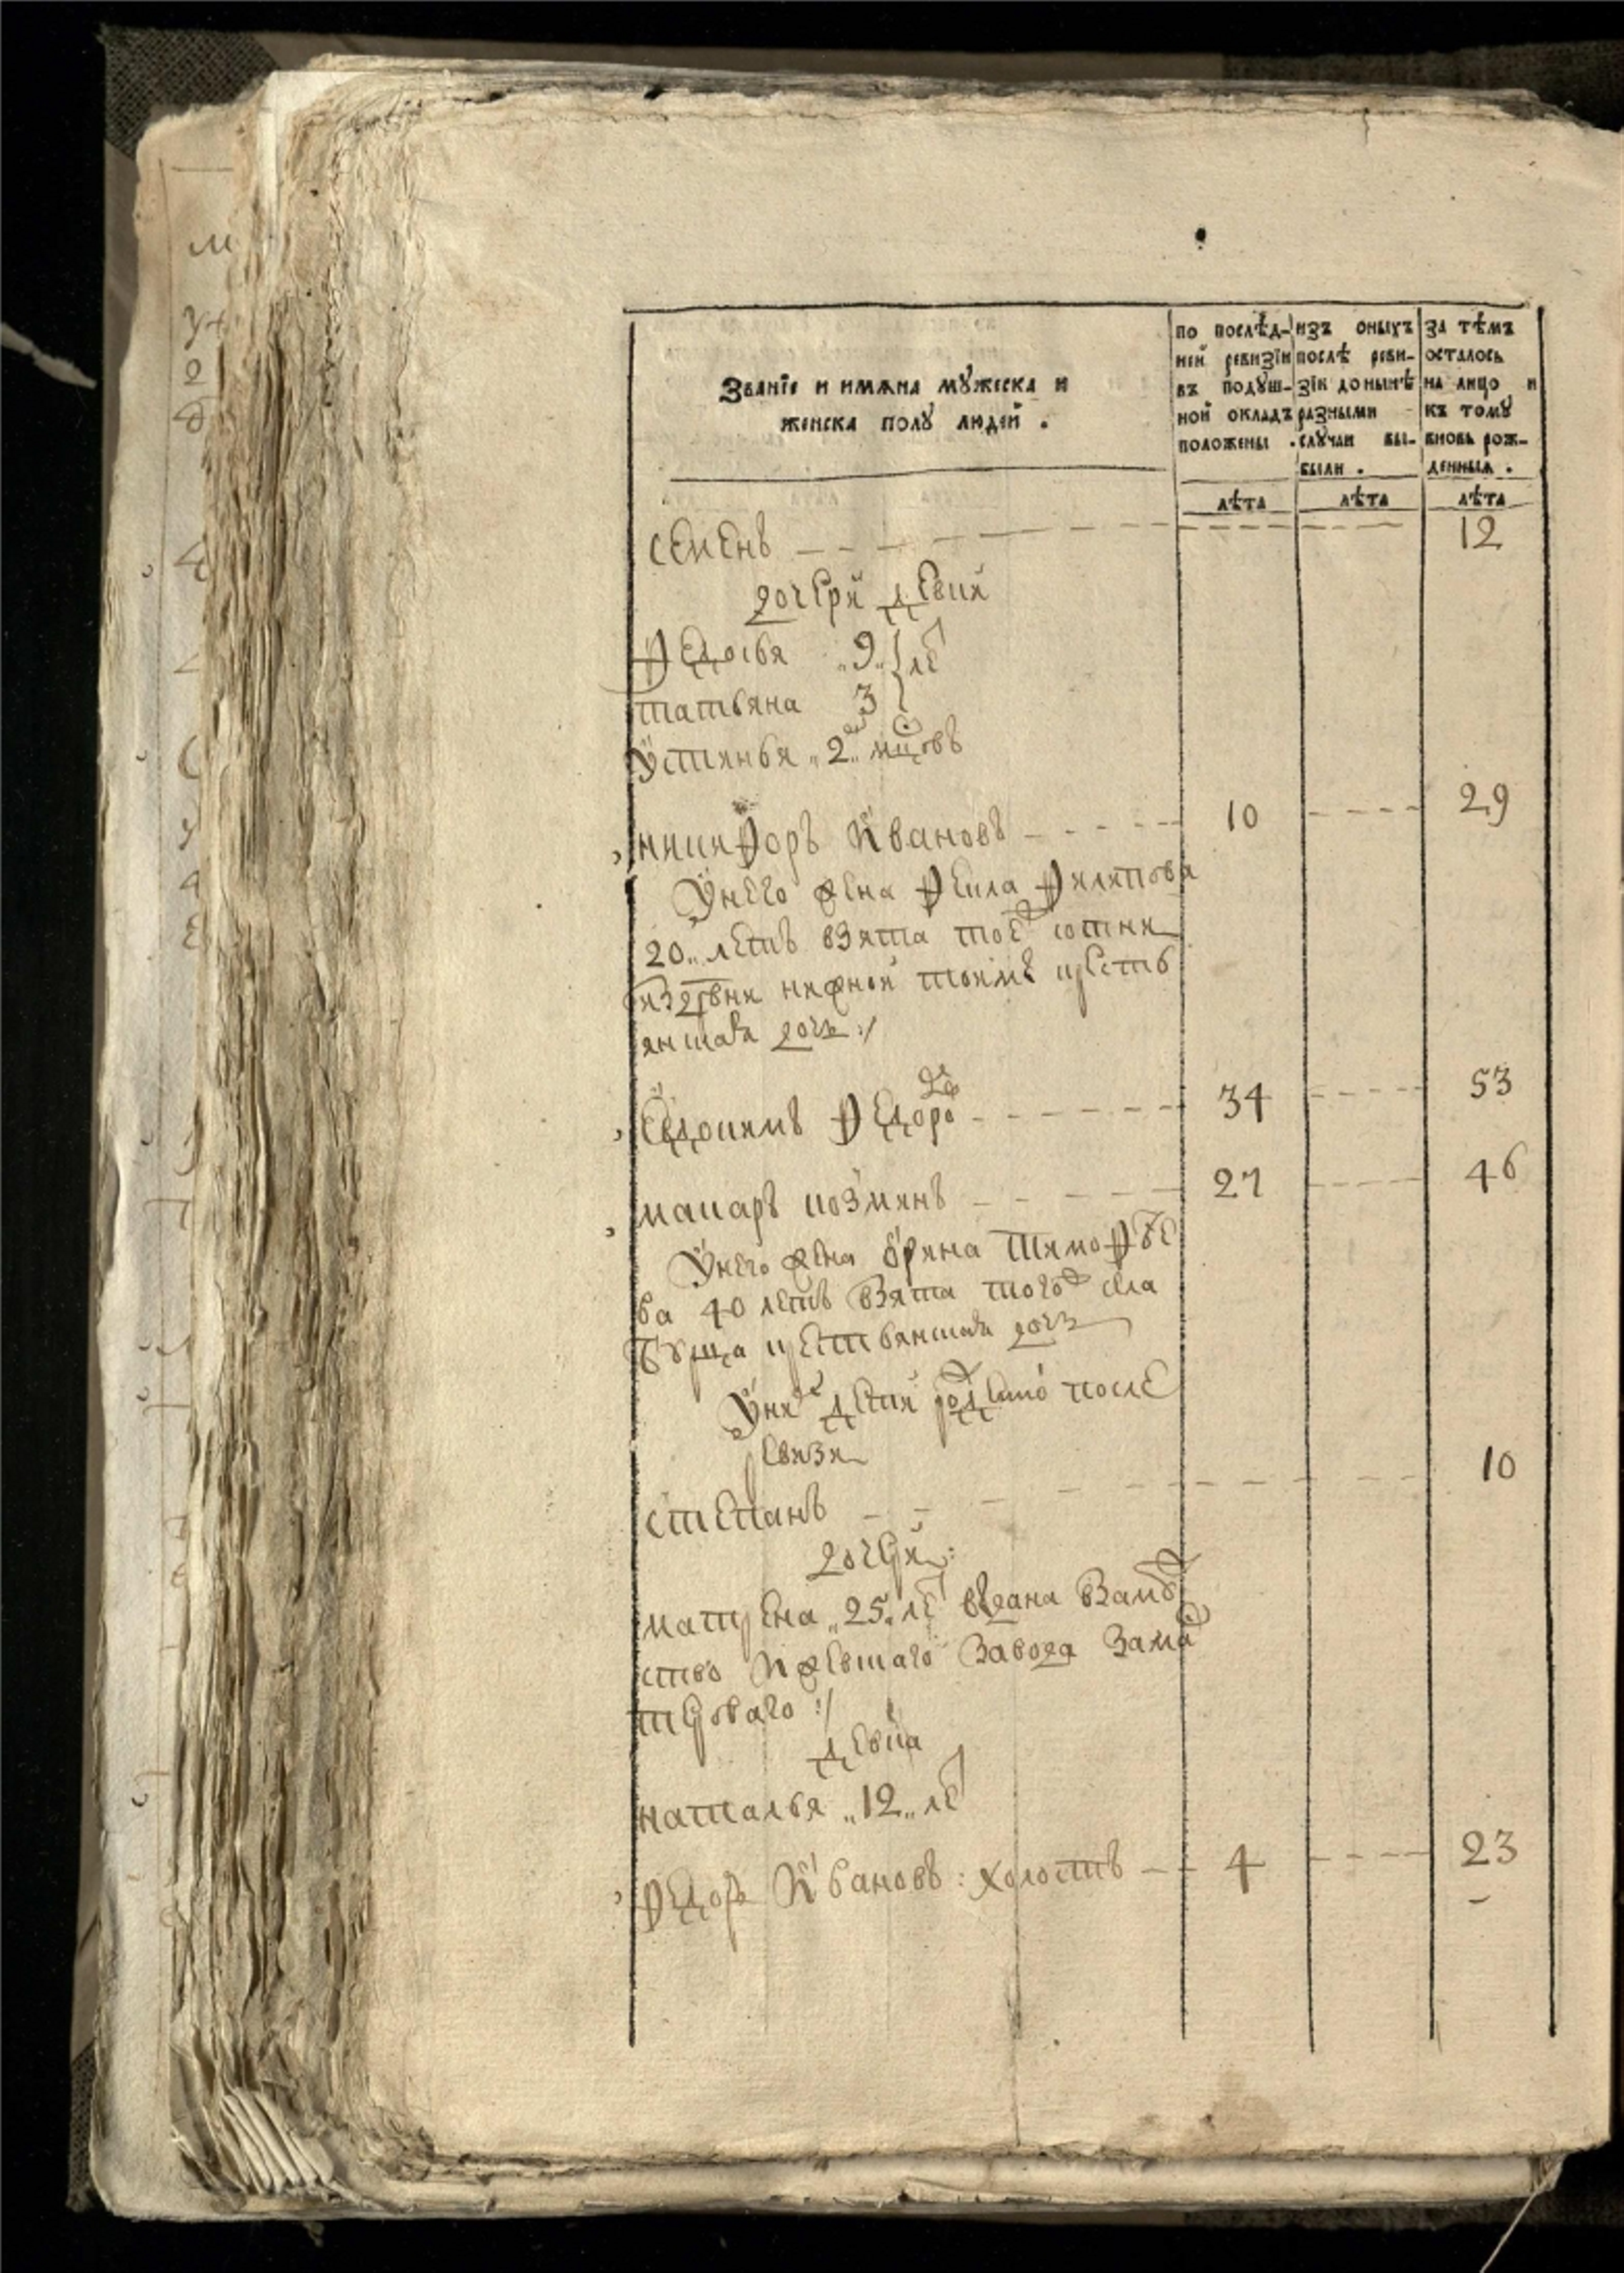 Званїе и имѧна мꙋжеска и
женска полꙋ людей .
по послѣд-
ней ревизїи
въ подꙋш-
ной окладъ
положены .
изъ оныхъ
послѣ реви-
зїи до нынѣ
разными
слꙋчаи вы-
были .
за тѣмъ
осталось
на лицо и
къ томꙋ
вновь рож-
денныхъ .
лѣта лѣта лѣта
семенъ 12
дочери девки
Федосья 9 ле
татьяна 3
устинья 2 мцовъ
никифоръ Ивановъ 10 29
Унего жена Фекла Филипова
20 летъ взята тоеж сотни
нижной тоимы крестъ
янская дочь :/
Евдокимъ Федоро 34 53
макаръ козминъ 27 46
Унего жена орина тимофѣе
ва 40 летъ взята тогож села
крестьянская дочь
Уних дети после
ревизи
степанъ 10
дочери:
матрена 25 ле выдана взамꙋж
ство Ижевшаго завода зама
стероваго :/
девка
наталья 12 ле
Федоръ Ивановъ : холостъ 4 23